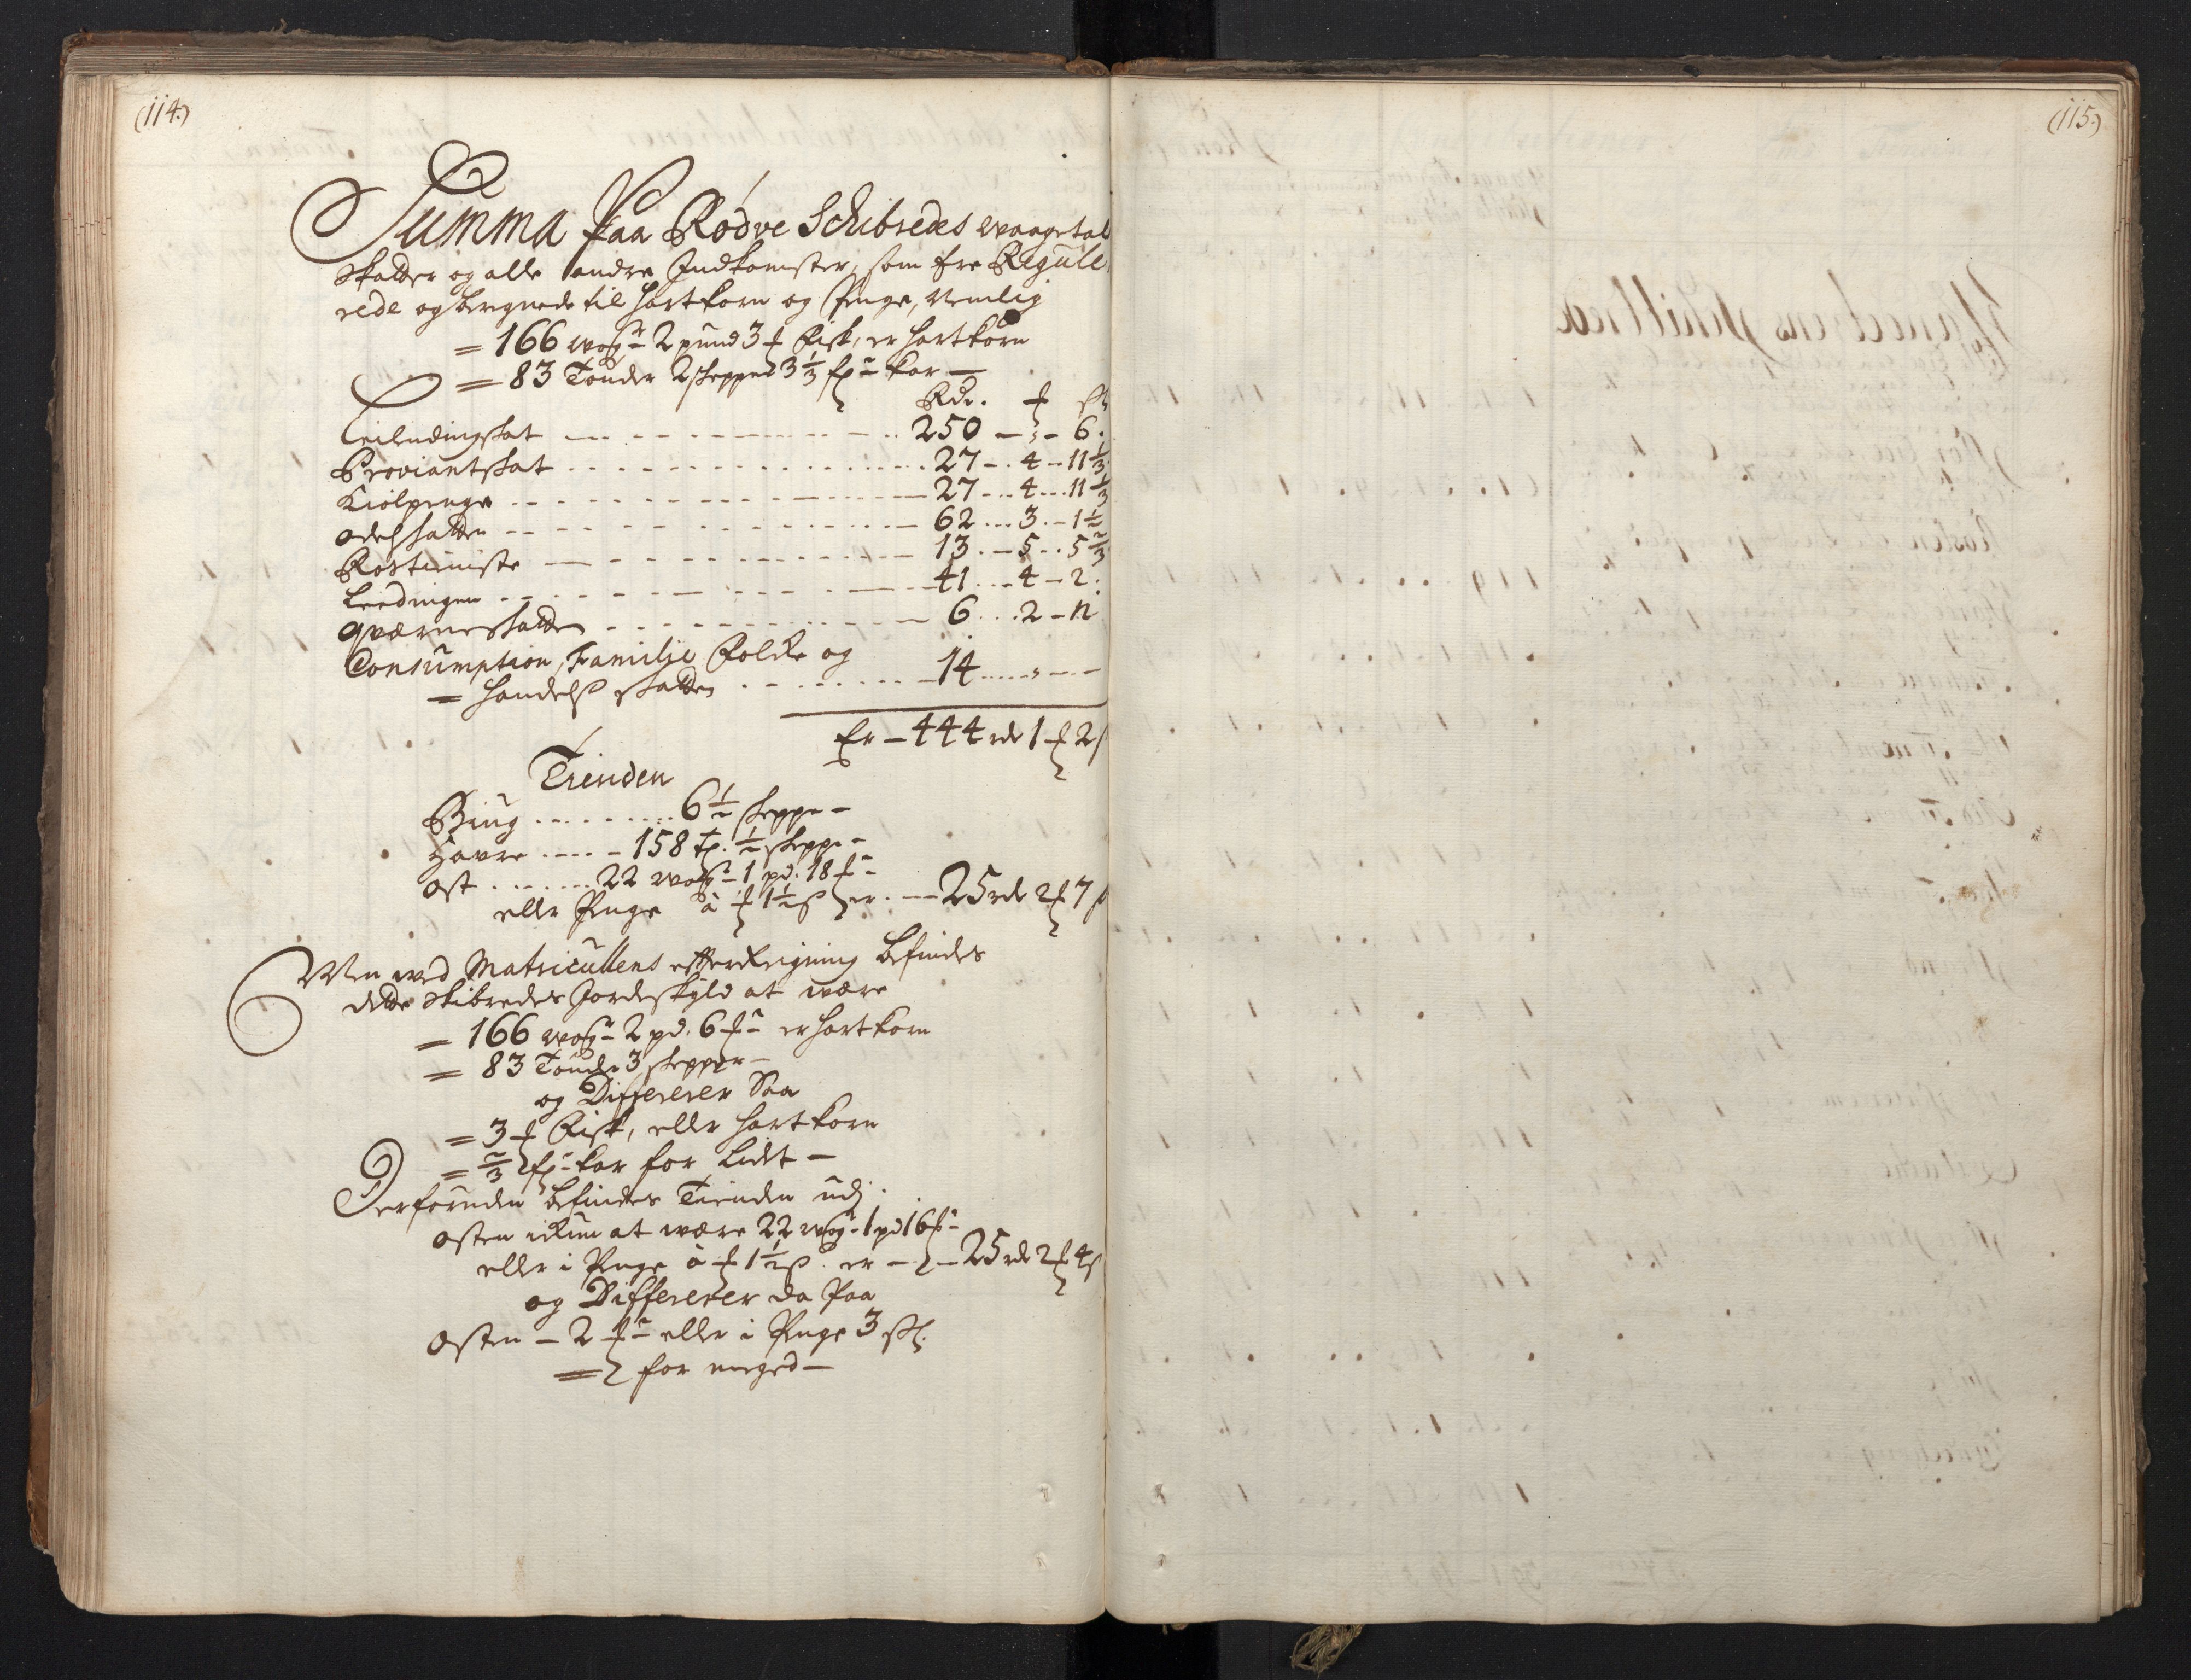 (114.)
Summa Paa Rødve Schibredes waagetal
Skatter og alle andre Indkomster, som ere Regule
rede og beregnede til hartkorn og Penge, Nemlig
= 166 wog 2 pund 3 ℔ Fisk, er hartkorn
= 83 Tønder 2 skepper 3 1/3 fr kar —
Rdr. ℔ sk
Leilendingskat 250 - „ - 6.
Proviantskat 27 - 4 - 11 1/3
Kiølpenge 27 - 4 - 11 1/3
Odelskatten 62 - 3 - 1 1/2
Rostieniste 13 - 5 - 5 2/3
Leedingen 41 - 4 - 2.
Qværneskatten 6 - 2 - „
Consumption, Familie Folke og
= Handels skatten 14 - „ -
Er - 444 rdr 1 ℔ 2 s
Tienden
Biug 6 1/2 skeppe -
Havre 158 tr. 1/2 skeppe -
Ost 22 wog 1 pd. 18 ℔
eller Penge à ℔ 1 1/2 s er - 25 rdr 2 ℔ 7 s
Men wed Matricullens efterreigning befindes
dette Skibredes Jordeskyld at være
= 166 wog 2 pd. 6 ℔ er hartkorn
= 83 Tønder 3 skepper -
og Differerer Saa
= 3 ℔ Fisk, eller hartkorn
= 2/3 fr kar for Lidet -
Derforuden befindes Tienden udj
Osten ickun at være 22 wog 1 pd 16 ℔
eller i Penge à ℔ 1 1/2 s er - 25 rdr 2 ℔ 4 s
og Differerer da Paa
Osten - 2 ℔ eller i Penge 3 sk.
= for meged -
(115.)